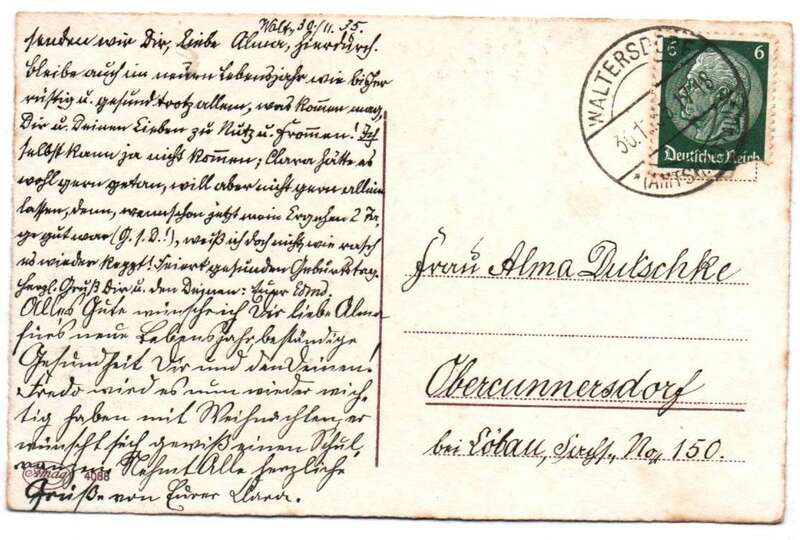 Walt., 30./11. 35.
senden wir Dir, liebe Alma, hierdurch.
Bleibe auch im neuen Lebensjahr wie bisher
rüstig u. gesund trotz allem, was kommen mag,
Dir u. Deinen Lieben zu Nutz u. Frommen! Ich
selbst kann ja nicht kommen; Clara hätte es
wohl gern getan, will aber nicht gern allein
lassen, denn, wennschon jetzt mein Ergehen 2 Ta-
ge gut war (G. s. D.!), weiß ich doch nicht, wie rasch
es wieder kippt! Feiert gesunden Geburtstag.
Herzl. Gruß Dir u. den Deinen: Euer Edm.
Alles Gute wünsche ich Dir liebe Alma
für's neue Lebensjahr beständige
Gesundheit Dir und den Deinen!
Fredo wird es nun wieder wich-
tig haben mit Weihnachten, er
wünscht sich gewiß einen Schul-
ranzen. Nehmt Alle herzliche
Grüße von Eurer Clara.
Amag 4088
WALTERSDORF
30.1
(AMTSH.
6 6
Deutsches Reich
Frau Alma Dutschke
Obercunnersdorf
bei Löbau, Sachs., No. 150.